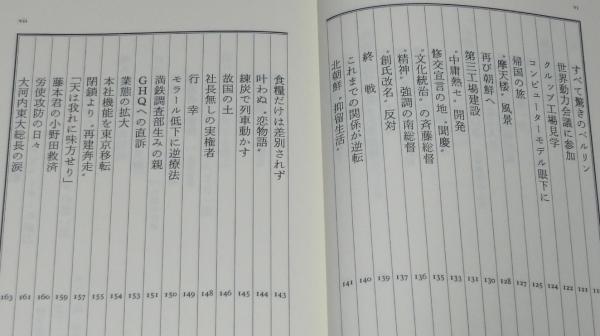 vi
すべて驚きのベルリン
世界動力会議に参加 121
クルップ工場見学 122
コンピューターモデル眼下に 124
帰国の旅 125
〝摩天楼〟風景 127
再び朝鮮へ 128
第三工場建設 130
〝中庸熱セ〟開発 131
修交宣言の地〝聞慶〟 133
〝文化統治〟の斉藤総督 135
〝精神〟強調の南総督 136
〝創氏改名〟反対 137
終戦 139
これまでの関係が逆転 140
北朝鮮〝抑留生活〟 141
食糧だけは差別されず 143
叶わぬ〝恋物語〟 144
練炭で列車動かす 145
故国の土 146
社長無しの実権者 148
行幸 149
モラール低下に逆療法 150
満鉄調査部生みの親 151
GHQへの直訴 153
業態の拡大 154
本社機能を東京移転 155
閉鎖より〝再建奔走〟 157
「天は我れに味方せり」 159
藤本君の小野田救済 160
労使攻防の日々 161
大河内東大総長の涙 163